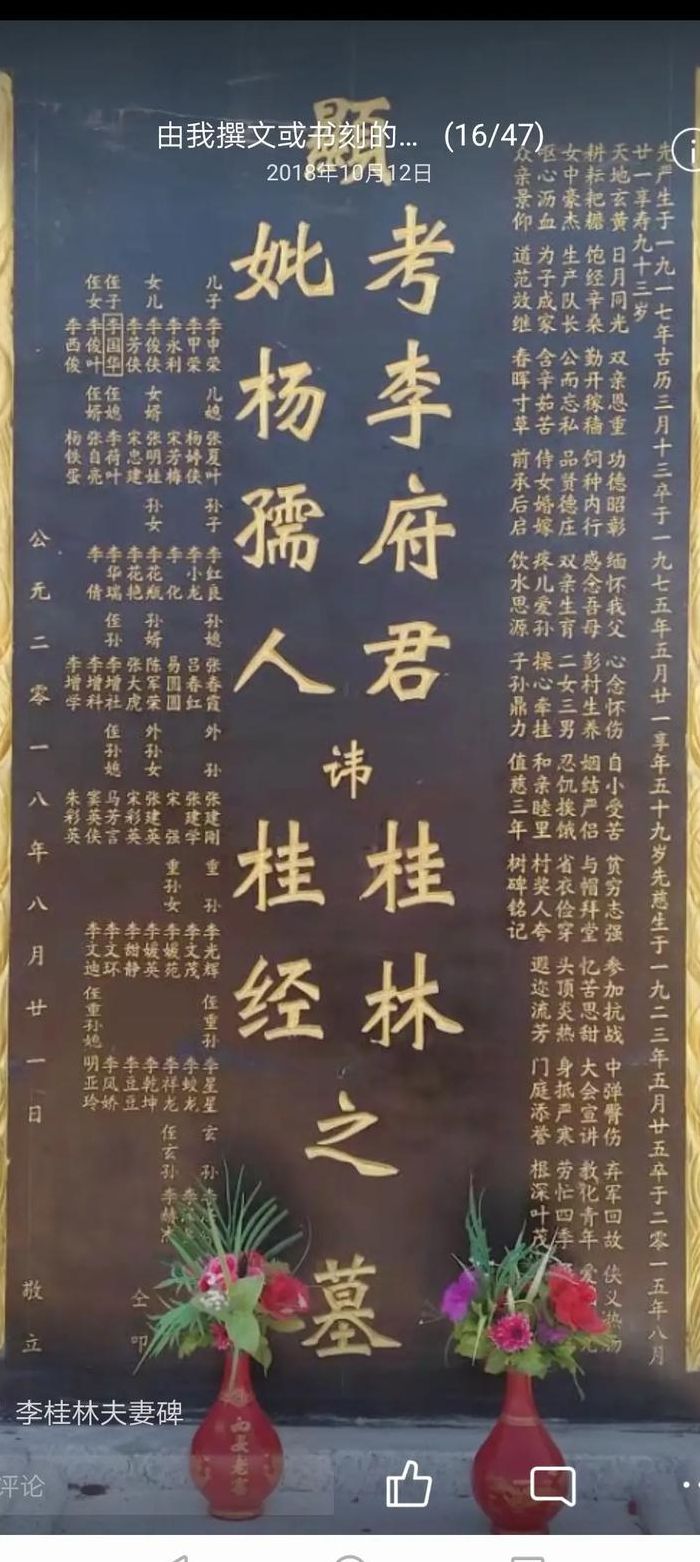 由我撰文或书刻的... (16/47)
2018年10月12日
先严生于一九一七年古历三月十三卒于一九七五年五月廿一享年五十九岁先慈生于一九二三年五月廿五卒于二零一五年八月
廿一享寿九十三岁
天地玄黄 日月同光 双亲恩重 功德昭彰 缅怀我父 心念怀伤 自小受苦 贫穷志强 参加抗战 中弹臀伤 弃军回故 侠义热肠
耕耘耙耱 饱经辛桑 勤开稼穑 饲种内行 感念吾母 彭村生养 姻结严侣 与帽拜堂 忆苦思甜 大会宣讲 教化青年 爱
女中豪杰 生产队长 公而忘私 品贤德庄 双亲生育 二女三男 忍饥挨饿 省衣俭穿 头顶炎热 身抵严寒 劳忙四季
呕心沥血 为子成家 含辛茹苦 侍女婚嫁 疼儿爱孙 操心牵挂 和亲睦里 村奖人夸 遐迩流芳 门庭添誉 根深叶茂
众亲景仰 道范效继 春晖寸草 前承后启 饮水思源 子孙鼎力 值慈三年 树碑铭记
显
考李府君
妣杨孺人
讳
桂林
桂经
之墓
儿子 李申荣 儿媳 张夏叶 孙子 李红良 孙媳 张春霞 外孙 张建刚 重孙 李光辉 侄重孙 李星星 玄孙 李
李甲荣 杨婷侠 李小龙 吕春红 张建学 李文茂 李蛟龙
李永利 宋芳梅 李化 易圆圆 宋强 重孙女 李媛苑 李祥龙 侄玄孙 李
女儿 李俊侠 女婿 张明娃 孙女 李花瓶 孙婿 陈军荣 外孙女 张建英 李媛英 李乾坤
李芳侠 宋忠建 李花艳 张大虎 宋彩英 李甜静 李豆豆
侄子 李国华 侄媳 李荷叶 李华瑞 侄孙 李增社 侄孙媳 马芳言 李文环 李凤娇
侄女 李俊叶 侄婿 张自亮 李倩 李增科 窦英侠 李文迪 侄重孙媳 明亚玲
李西俊 杨铁蛋 李增学 朱彩英
仝叩
公元二零一八年八月廿一日 敬立
李桂林夫妻碑
评论